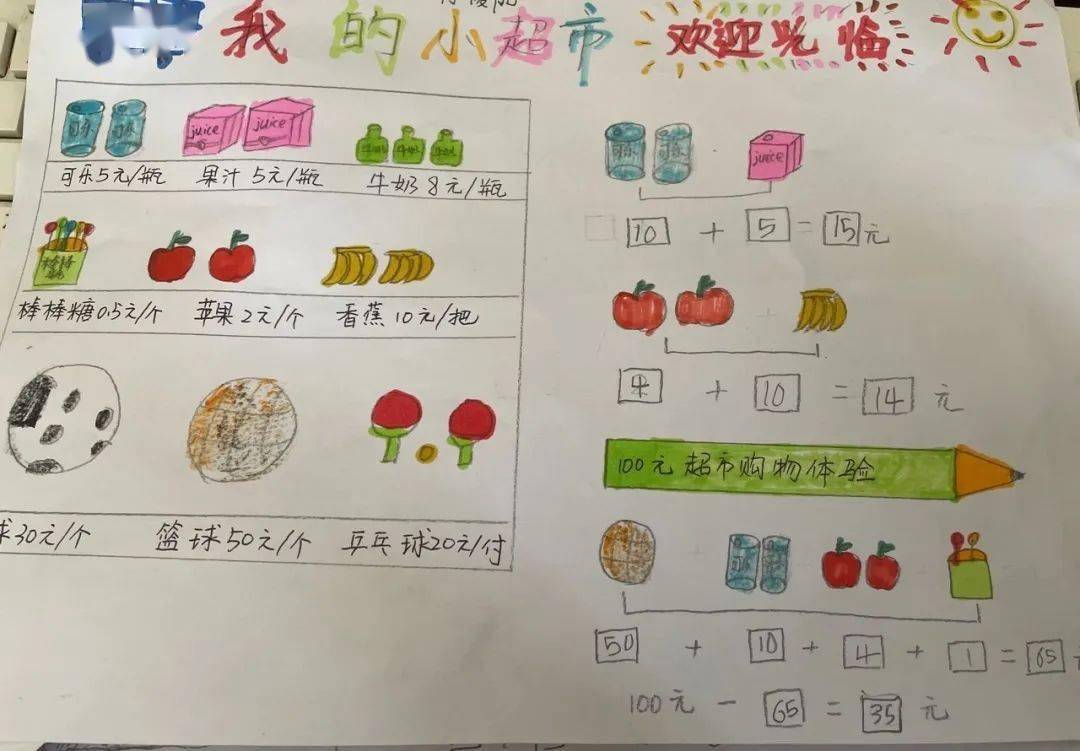 我的小超市 欢迎光临
可乐 可乐 juice juice 牛奶 牛奶 牛奶
可乐5元/瓶 果汁 5元/瓶 牛奶 8元/瓶
棒棒
棒棒糖0.5元/个 苹果2元/个 香蕉10元/把
球30元/个 篮球50元/个 乒乓球20元/付
可乐 可乐 juice
10 + 5 = 15元
4 + 10 = 14 元
100元超市购物体验
可乐 可乐
50 + 10 + 4 + 1 = 65
100元 - 65 = 35 元